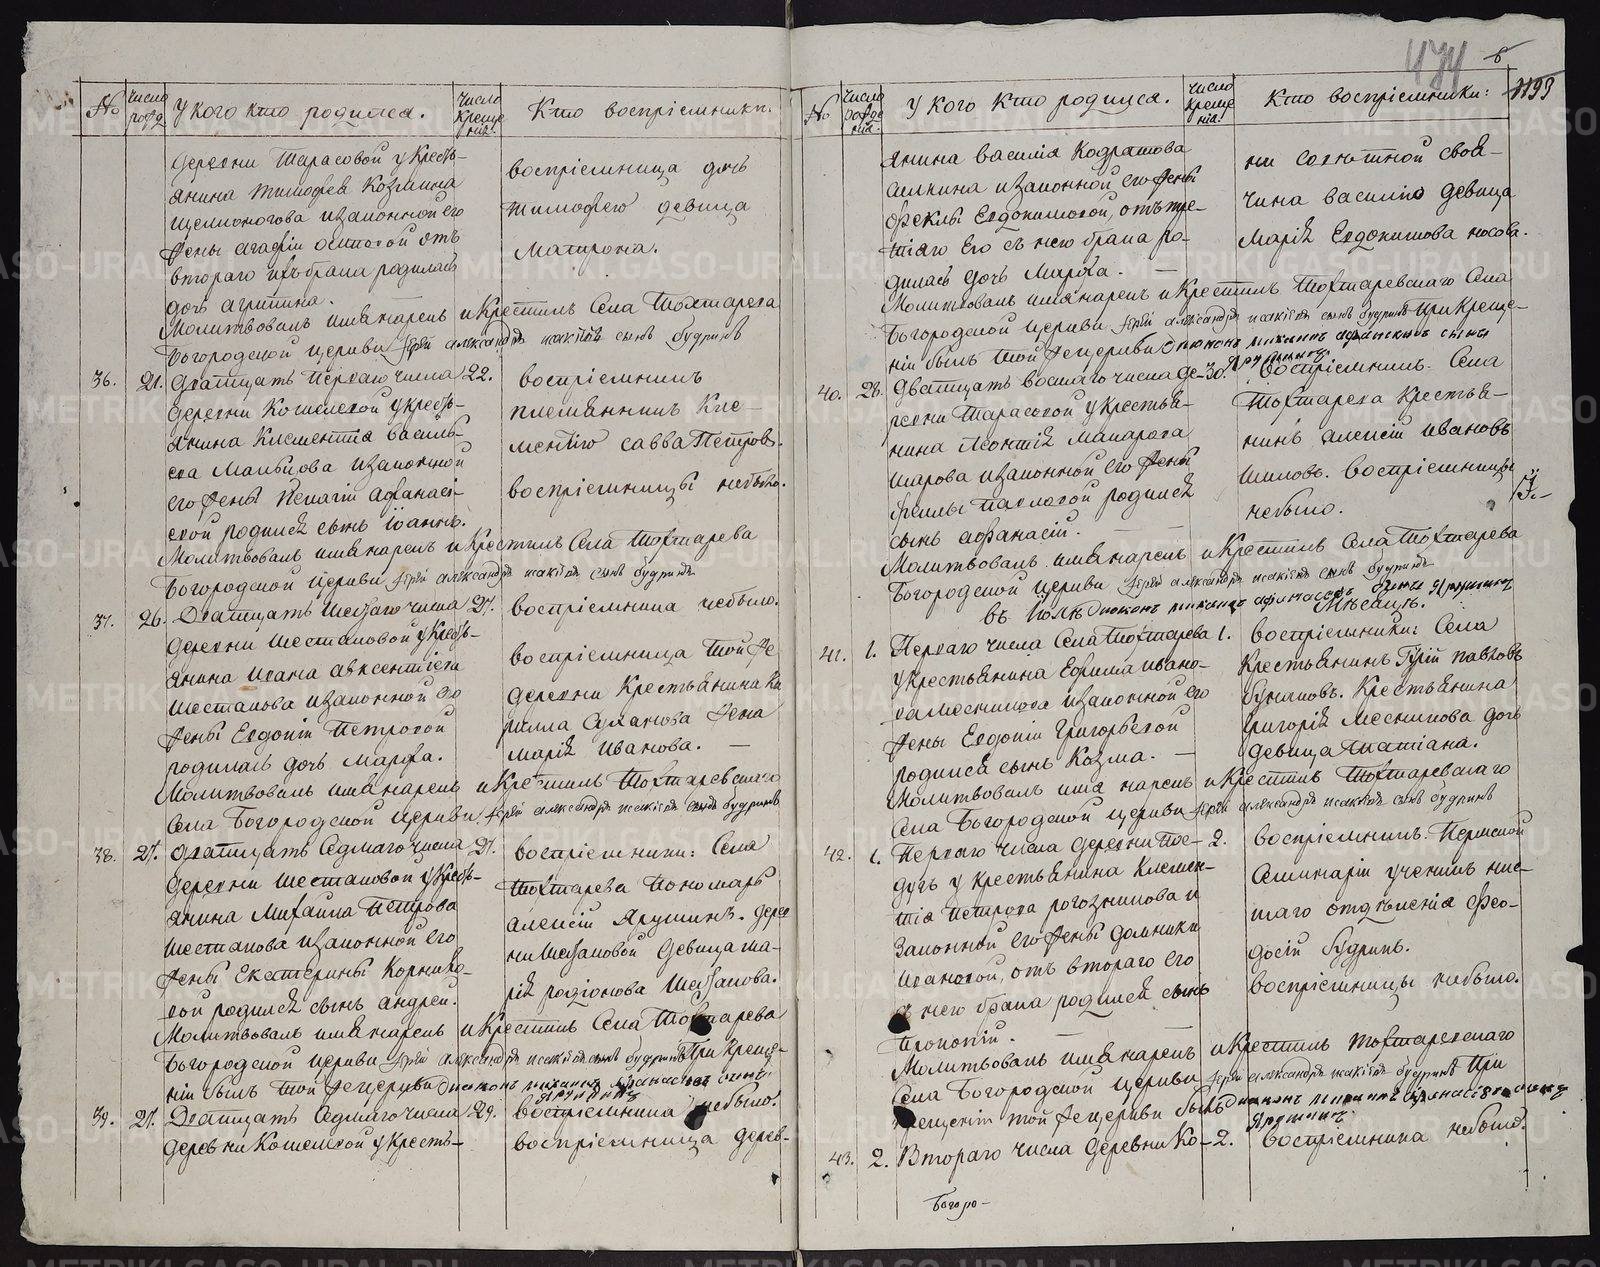 474
8
1193
№
число рожд
У кого кто родился.
Число Креще ния.
Кто воспріемники.
деревни Тарасовой у кресть-
янина Тимофея Козмина
Щелконогова и законной его
жены Агафіи Осиповой отъ
втораго ихъ брака родилась
дочь Агрипина.
воспріемница дочь
Тимофею девица
Матрона.
Молитвовалъ имя нарекъ и Крестилъ Села Тохтарева
Богородской церкви іерей Александръ Іоакіковъ сынъ Будринъ
36.
21.
Дватцать перваго числа
22.
деревни Кошелевой у кресть-
янина Климентія Василь-
ева Мальцова и законной
его жены Пелагіи Афанасі-
евой родился сынъ Іоаннъ.
воспріемникъ
племянникъ Кле-
ментію Савва Петровъ.
воспріемницы небыло.
Молитвовалъ имя нарекъ и Крестилъ Села Тохтарева
Богородской церкви іерей Александръ сынъ Будринъ
37.
26.
Дватцать шестаго числа
27.
деревни Шестаковой у кресть-
янина Ивана Авксентіева
Шестакова и законной его
жены Евдокіи Петровой
родилась дочь Марфа.
воспріемника небыло.
воспріемница той же
деревни Крестьянина Ки
рилла Суханова жена
Марія Иванова.
Молитвовалъ имя нарекъ и Крестилъ Тохтаревскаго
Села Богородской церкви іерей Александръ сынъ Будринъ
38.
27.
Дватцать седмаго числа
27.
деревни Шестаковой у кресть-
янина Михаила Петрова
Шестакова и законной его
жены Екатерины Корнило-
вой родился сынъ Андрей.
воспріемники: Села
Тохтарева Пономарь
Алексій Ярушинъ. дерев
ни Шестаковой девица Ма-
рія Родіонова Шестакова.
Молитвовалъ имя нарекъ и Крестилъ Села Тохтарева
Богородской церкви іерей Александръ сынъ Будринъ При креще-
ніи былъ той же церкви діаконъ Михаилъ Афанасьевъ сынъ
Ярушинъ
39.
27.
Дватцать седмаго числа
29.
воспріемника небыло.
деревни Кошелевой у кресть-
воспріемница дерев-
№
число рожде нія.
У кого кто родился.
число креще нія.
Кто воспріемники:
янина Василія Кодратова
Аликина и законной его жены
Феклы Евдокимовой, отъ тре-
тіяго его съ нею брака ро-
дилась дочь Марфа.
ни своя-
чина Василію девица
Марія Евдокимова Носова.
Молитвовалъ имя нарекъ и Крестилъ Тохтаревскаго Села
Богородской церкви іерей Александръ сынъ Будринъ При Креще-
ніи былъ той же церкви діаконъ Михаилъ Афанасьевъ сынъ
Ярушинъ.
40.
28.
Дватцать восмаго числа де-
30.
воспріемникъ. Села
ревни Тарасовой у крестья-
нина Леонтія Макарова
Шарова и законной его жены
Феклы Павловой родился
сынъ Афанасій.
Тохтарева Крестья-
нинъ Алексій Ивановъ
Шиловъ. воспріемницы
небыло.
Молитвовалъ имя нарекъ и Крестилъ Села Тохтарева
Богородской церкви іерей Александръ сынъ Будринъ
діаконъ Михаилъ Афанасьевъ сынъ Ярушинъ
въ Іюлѣ Мѣсяцѣ.
41.
1.
Перваго числа Села Тохтарева
1.
воспріемники: Села
у крестьянина Ефима Ивано-
ва Месникова и законной его
жены Евдокіи Григорьевой
родился сынъ Козма.
Крестьянинъ Гурій Павловъ
Бумаковъ. Крестьянина
Григорія Месникова дочь
девица Татіана.
Молитвовалъ имя нарекъ и Крестилъ Тохтаревскаго
Села Богородской церкви іерей Александръ сынъ Будринъ
42.
1.
Перваго числа деревни Пое-
2.
воспріемникъ. Пермской
дугъ у крестьянина Климен-
тія Петрова Рогозникова и
законной его жены Домники
Ивановой, отъ втораго его
съ нею брака родился сынъ
Прокопій.
Семинаріи ученикъ нис-
шаго отдѣленія Фео-
досій Будринъ.
воспріемницы небыло.
Молитвовалъ имя нарекъ и Крестилъ Тохтаревскаго
Села Богородской церкви іерей Александръ сынъ Будринъ При
крещеніи той же церкви былъ діаконъ Михаилъ Афанасьевъ сынъ
Ярушинъ
43.
2.
Втораго числа деревни Ко-
2.
воспріемника небыло.
Богоро-